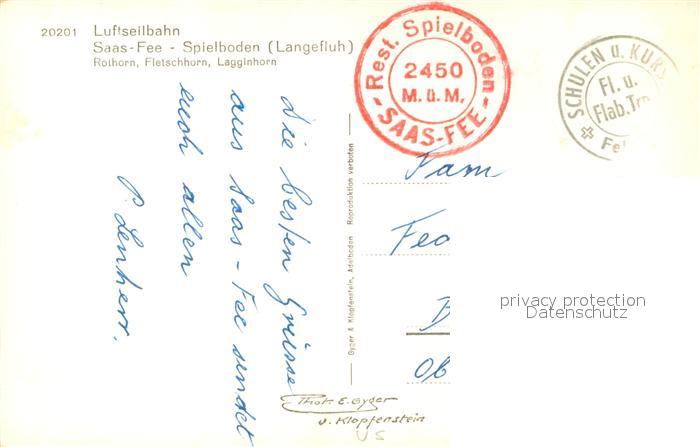 20201 Luftseilbahn
Saas-Fee - Spielboden (Langefluh)
Rothorn, Fletschhorn, Lagginhorn
Rest. Spielboden
2450
M.ü.M.
- SAAS-FEE -
SCHULEN u. KURSE
Fl. u.
Flab. Tr
Fe
Die besten Grüsse
aus Saas-Fee sendet
euch allen
P. Lenherr.
Gyger & Klopfenstein, Adelboden Reproduktion verboten
Fam
Feo
B
Ob
privacy protection
Datenschutz
Phot. E. Gyger
u. Klopfenstein